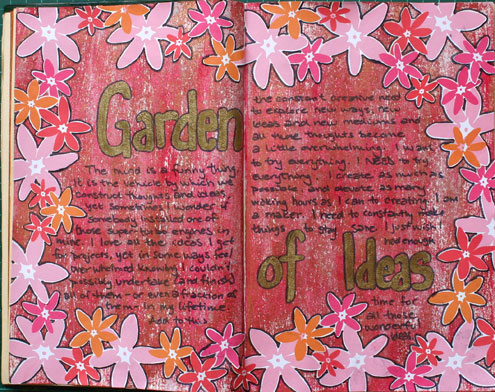 Garden
The mind is a funny thing.
It is the vehicle by which we
construct thoughts and ideas
yet sometimes I wonder if
somebody installed one of
those super turbo engines in
mine. I love all the ideas I get
for projects, yet in some ways feel
overwhelmed knowing I couldn't
possibly undertake (and finish)
all of them - or even a fraction of
them - in my lifetime.
Add to this
the constant creative need
to explore new ways, new
ideas and new mediums and
all those thoughts become
a little overwhelming. I want
to try everything. I NEED to try
everything. I create as much as
possible and devote as many
waking hours as I can to creating. I am
a maker. I need to constantly make
things to stay sane. I just wish I
had enough
of Ideas
time for
all those
wonderful
ideas.